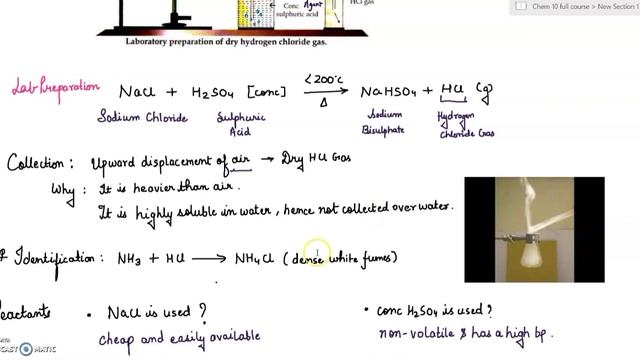 Chem 10 full course > New Section 1
Conc Agent
sulphuric acid
HCl gas
Laboratory preparation of dry hydrogen chloride gas.
Lab Preparation
NaCl + H2SO4 [conc] <200°C Δ → NaHSO4 + HCl (g)
Sodium Chloride Sulphuric Acid Sodium Bisulphate Hydrogen Chloride Gas
Collection : Upward displacement of air → Dry HCl Gas
Why : It is heavier than air.
It is highly soluble in water, hence not collected over water.
Identification : NH3 + HCl → NH4Cl (dense white fumes)
Reactants • NaCl is used ?
cheap and easily available
• conc H2SO4 is used ?
non-volatile & has a high bp.
MATIC